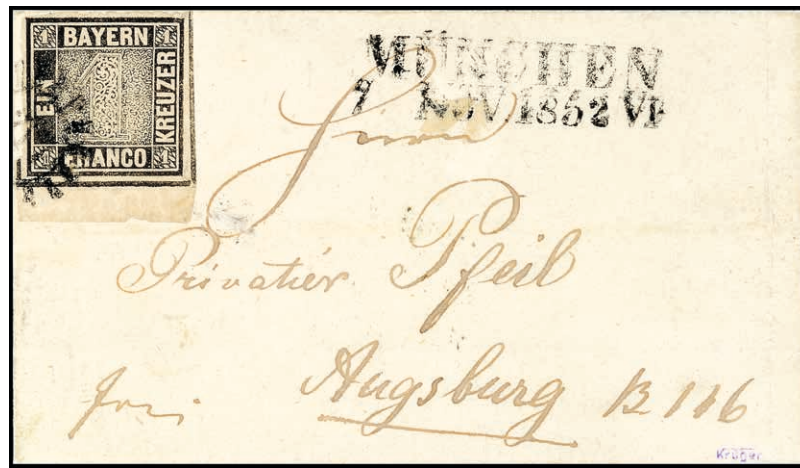 1 BAYERN 1
EIN
KREUZER
1 FRANCO 1
MÜNCHEN
7 NOV. 1852 VI
Herrn
Privatier Pfeil
frei Augsburg B 116
Krüger